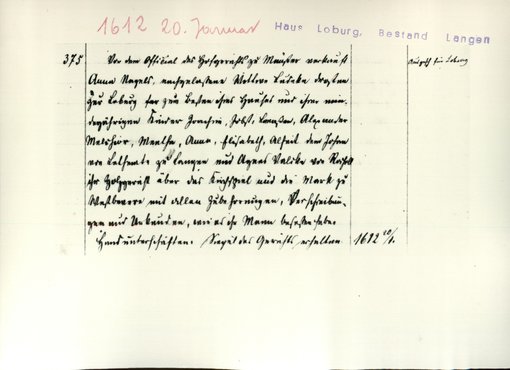 1612 20. Januar Haus Loburg, Bestand Langen
375 Vor dem Official des Hofgerichts zu Münster verkauft
Anna Nagels, nachgelassene Wittwe Lübeke
zur Loburg für zum Behuf ihres Hauses und ihrer min-
derjährigen Kinder Joachim, Jobst, Alexander
Melchior, Anna, Elisabeth, Alheit dem Johan
von Beltheim zu Langen und Agnes Valke von
ihr Holzgericht über das Kirchspiel und die Mark zu
Westbevern mit allen Zubehörungen, Verschreibun-
gen und Urkunden, wie es ihr Mann besessen habe.
Handunterschriften. Siegel des Gerichts erhalten 1612 20/1.